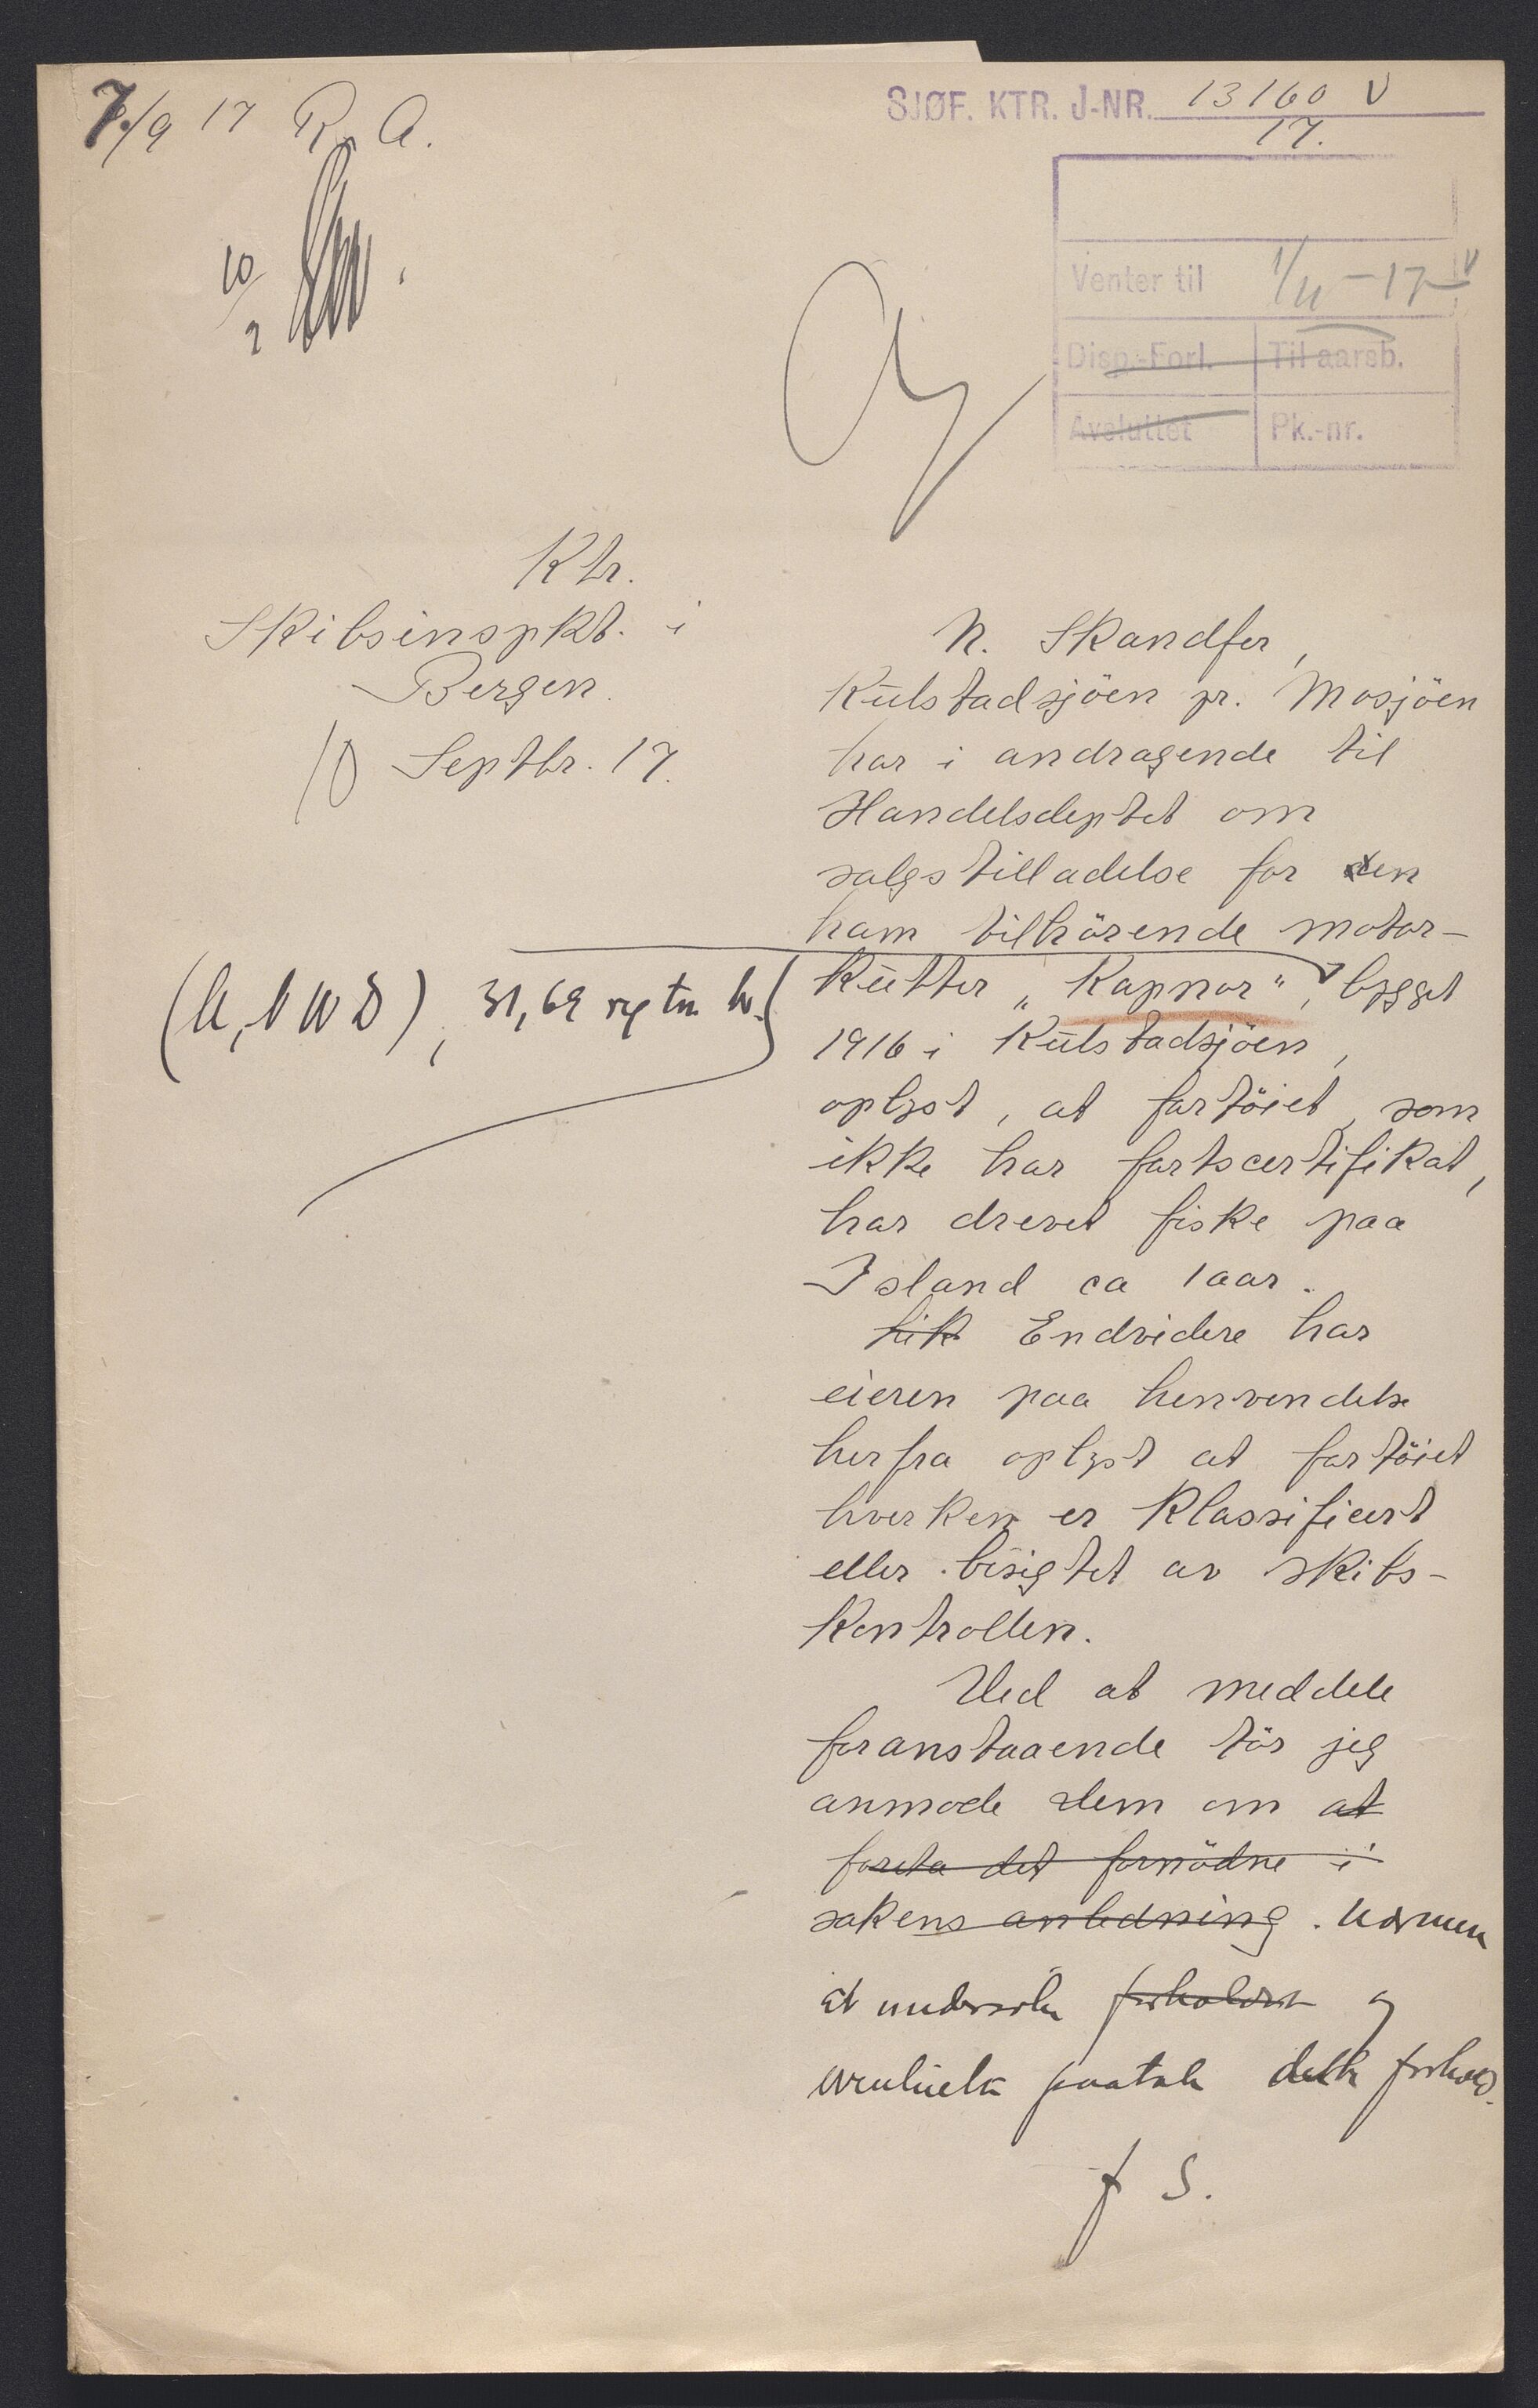 7/9 17 R. A.
SJØF. KTR. J-NR. 13160 V
17.
10/9
Venter til 1/11-17 V
Disp.-Forl. Til aarsb.
Avsluttet Pk.-nr.
Ktr.
Skibsinspkt. i
Bergen.
10 Septbr. 17.
N. Skandfer,
Kulstadsjöen pr. Mosjöen
har i andragende til
Handelsdeptet om
salgstilladelse for den
ham tilhörende motor-
kutter „Kapnor", bygget
(M, N W D), 31,69 rg tn br.
1916 i Kulstadsjöen,
oplyst, at fartöiet, som
ikke har fartscertifikat,
har drevet fiske paa
Island ca 1 aar.
hik Endvidere har
eieren paa henvendelse
herfra oplyst at fartöiet
hverken er klassificert
eller besigtet av skibs-
kontrollen.
Ved at meddele
foranstaaende tör jeg
anmode dem om at
foreta det fornödne i
sakens anledning.
at undersöke forholdet og
eventuelt paatale dette forhold.
f S.